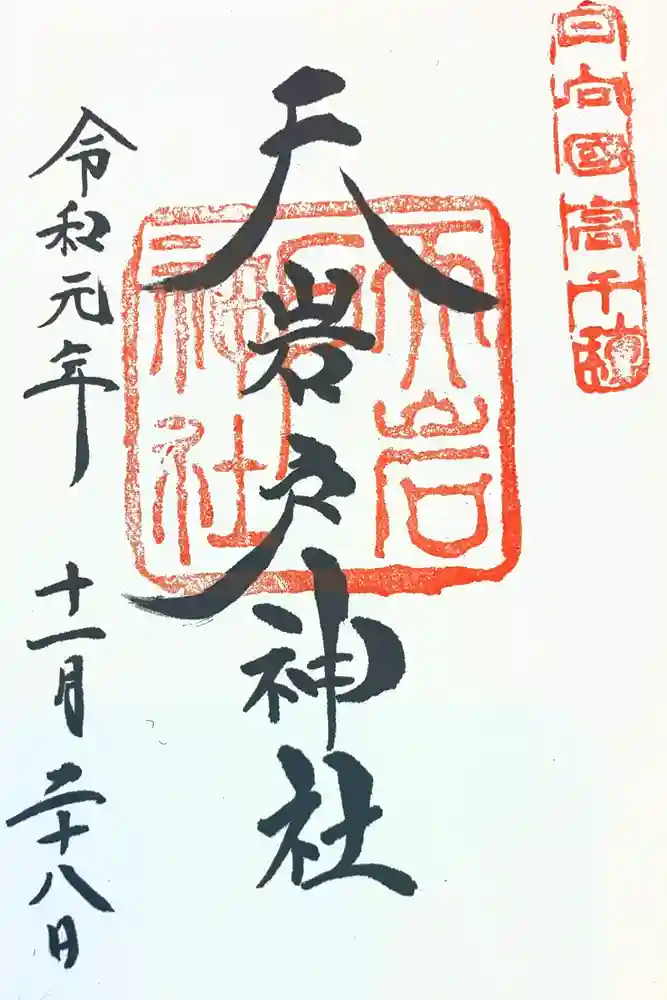 日向國高千穂
天岩戸神社
天岩戸神社
令和元年十一月二十八日